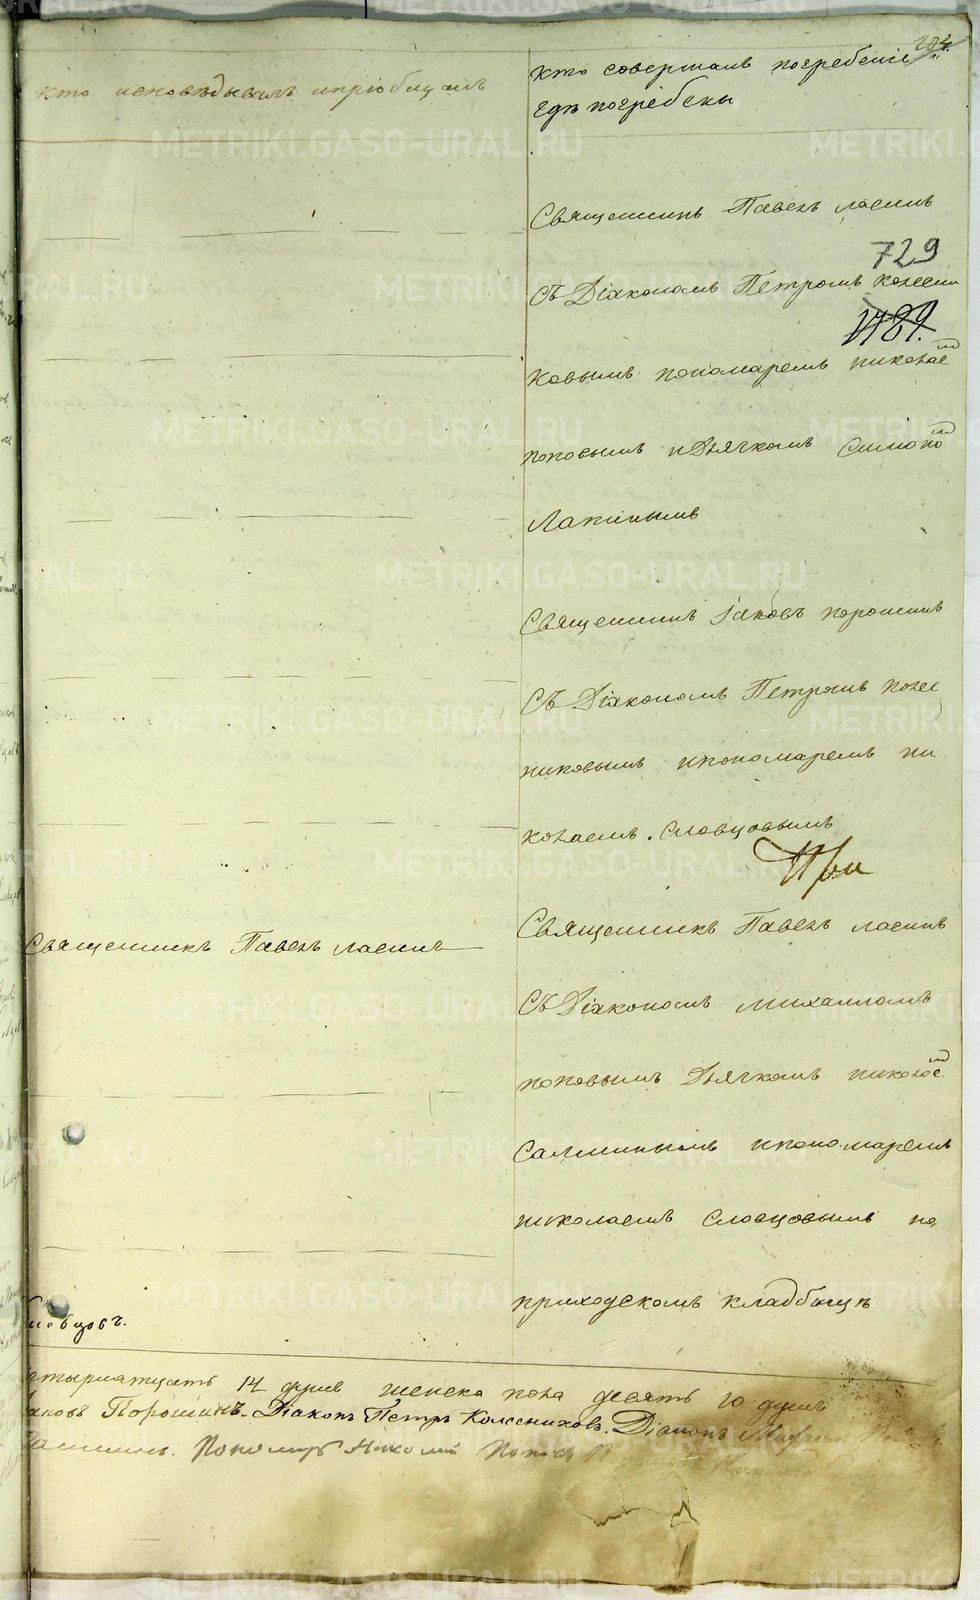 кто исповѣдывалъ ипріобщалъ
кто совершалъ погребеніе
гдѣ погребены
Священникъ Павелъ
729
Съ Діакономъ Петромъ колесни
1789.
ковымъ пономаремъ николае
мъ
поповымъ идьячкомъ Симоно
мъ
Лапинымъ
Священникъ Іаковъ порошинъ
Съ Діакономъ Петромъ колес
никовымъ ипономаремъ ни
колаемъ словцовымъ
При
Священникъ Павелъ
Священникъ Павелъ
Съ Діакономъ михаиломъ
поповымъ Дьячкомъ николае
мъ
ипономаремъ
николаемъ словцовымъ на
приходскомъ кладбищѣ
ловцовъ.
етырнатцать 14 душъ женска пола десять 10 душъ
аковъ Порошинъ. Діаконъ Петръ Колесниковъ. Діаконъ Михаилъ
Пономарь Николай Поповъ